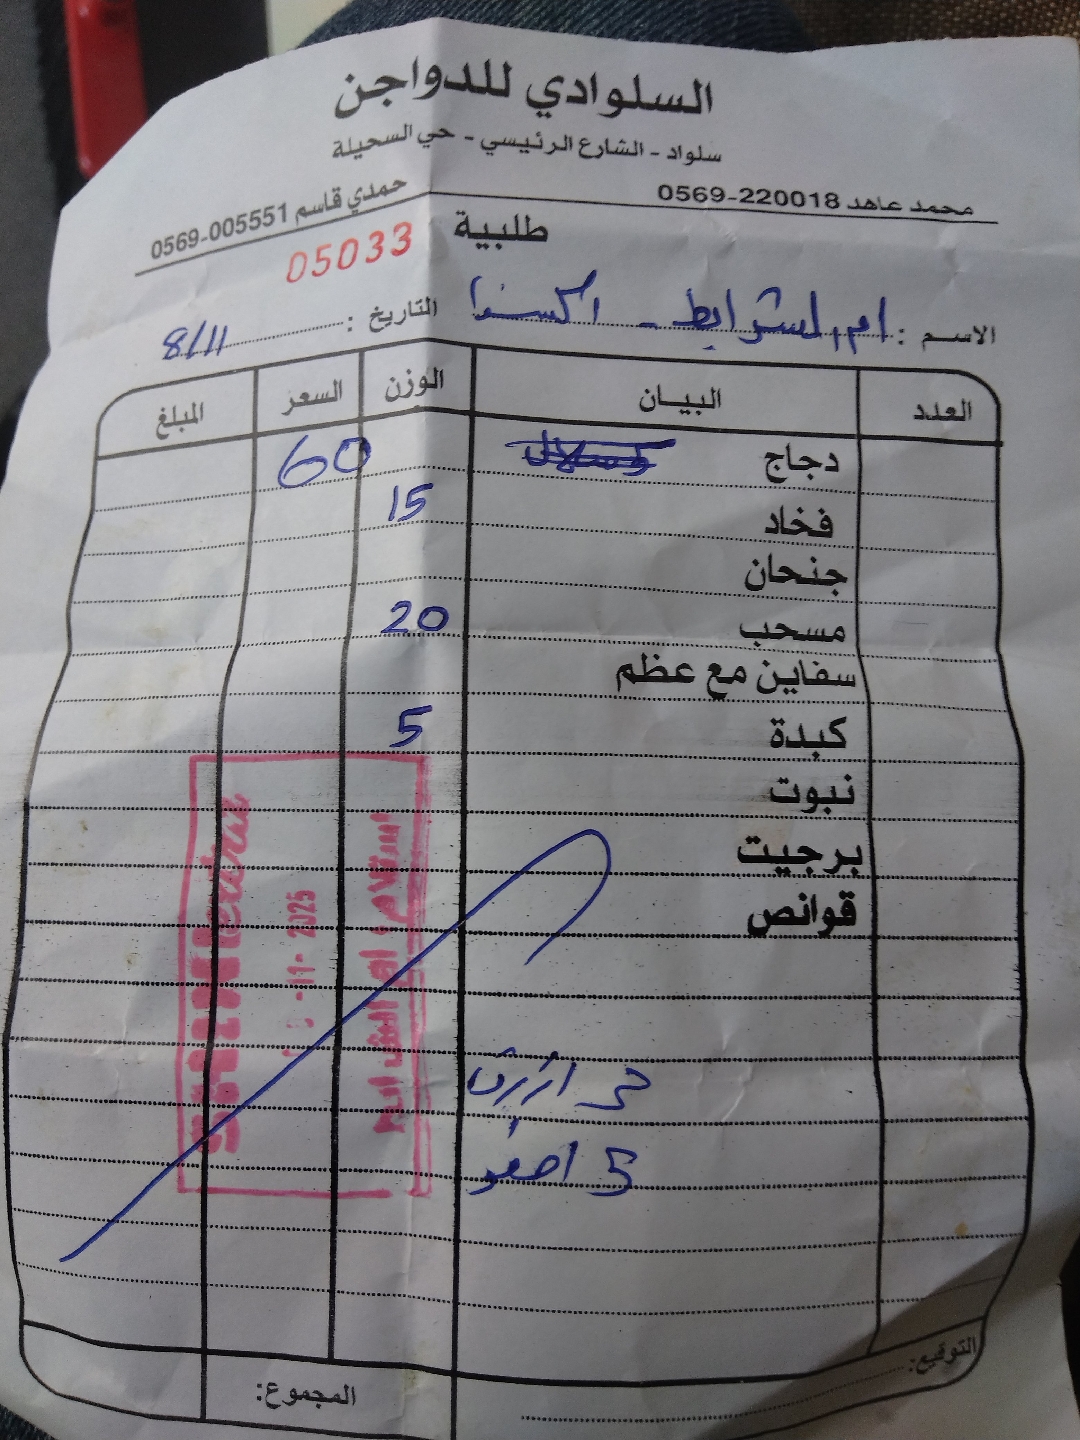 السلوادي للدواجن
سلواد - الشارع الرئيسي - حي السحيلة
محمد عاهد 0569-220018 حمدي قاسم 0569-005551
طلبية 05033
الاسم : ام الشرايط - التاريخ : 8/11
العدد البيان الوزن السعر المبلغ
دجاج 60
فخاد 15
جنحان
مسحب 20
سفاين مع عظم
كبدة 5
نبوت
برجيت
قوانص
استلام، ام الشرايط
-11- 2025
3 ازرق
5 اصفر
التوقيع:
المجموع: